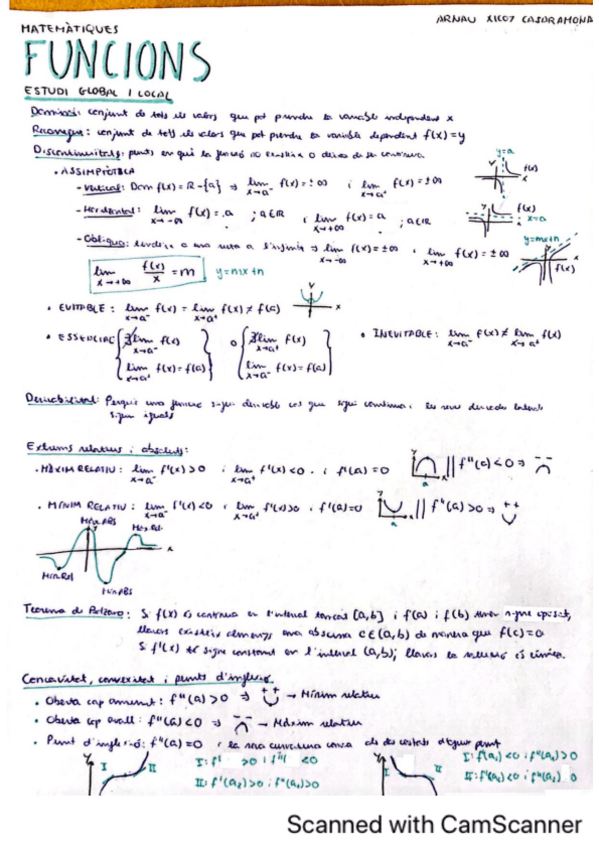 ARNAU XICOT CASADRAMONA
MATEMÀTIQUES
FUNCIONS
ESTUDI GLOBAL I LOCAL
Domini: conjunt de tots els valors que pot prendre la variable independent x
Recorregut: conjunt de tots els valors que pot prendre la variable dependent f(x)=y
Discontinuïtats: punts en què la funció no existeix o deixa de ser contínua.
• ASSIMPTOTICA
y=a
- Vertical: Dom f(x)=R-{a} ⇒ lim x→a⁻ f(x)=±∞ i lim x→a⁺ f(x)=±∞
f(x)
- Horitzontal: lim x→-∞ f(x)=a ; a∈R i lim x→+∞ f(x)=a ; a∈R
f(x)
x=a
- Obliqua: a una recta a l'infinit ⇒ lim x→-∞ f(x)=±∞ i lim x→+∞ f(x)=±∞
y=mx+n
f(x)
lim x→+∞ f(x)/x = m y=mx+n
• EVITABLE: lim x→a⁻ f(x) = lim x→a⁺ f(x) ≠ f(a)
• ESSENCIAL { ∄ lim x→a⁻ f(x) o { ∄ lim x→a⁺ f(x) • INEVITABLE: lim x→a⁻ f(x) ≠ lim x→a⁺ f(x)
lim x→a⁺ f(x)=f(a) } lim x→a⁻ f(x)=f(a) }
Derivabilitat: Perquè una funció sigui derivable cal que sigui contínua i les seves derivades laterals
siguin iguals
Extrems relatius i absoluts:
• MÀXIM RELATIU: lim x→a⁻ f'(x)>0 i lim x→a⁺ f'(x)<0 i f'(a)=0 || f''(a)<0 ⇒
• MÍNIM RELATIU: lim x→a⁻ f'(x)<0 i lim x→a⁺ f'(x)>0 i f'(a)=0 || f''(a)>0 ⇒
Màx ABS
Màx Rel
Mín Rel
Mín ABS
Teorema de Bolzano: Si f(x) és contínua en l'interval tancat [a,b] i f(a) i f(b) tenen signe oposat,
llavors existeix almenys una abscissa c∈(a,b) de manera que f(c)=0
Si f'(x) té signe constant en l'interval (a,b), llavors la solució és única.
Concavitat, convexitat i punts d'inflexió.
• Oberta cap amunt: f''(a)>0 ⇒ → Mínim relatiu
• Oberta cap avall: f''(a)<0 ⇒ → Màxim relatiu
• Punt d'inflexió: f''(a)=0 i la seva curvatura canvia als dos costats d'aquest punt
y I II I: f' >0 i f'' <0
II: f'(a₂)>0 i f''(a₂)>0
y I II I: f'(a₁)<0 i f''(a₁)>0
II: f'(a₂)<0 i f''(a₂) 0
Scanned with CamScanner